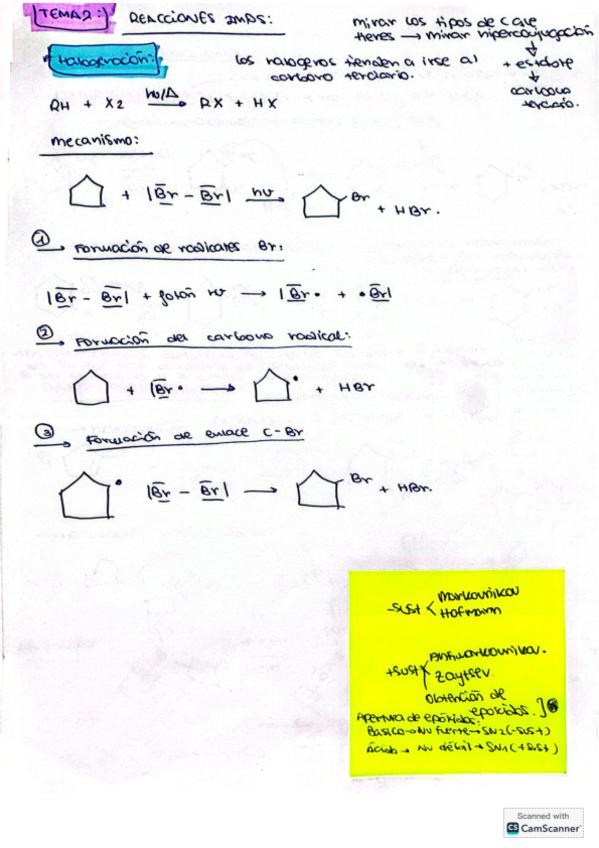 TEMA2: REACCIONES IMPS:
mirar los tipos de C que
tienes → mirar hiperconjugación
+ estable
carbono
terciario.
* Halogenación:
los halogenos tienden a irse al
carbono terciario.
RH + X2 hν/Δ → RX + HX
mecanismo:
+ |Br - Br| hν → Br + HBr.
① Formación de radicales Br:
|Br - Br| + fotón hν → |Br• + •Br|
② Formación del carbono radical:
+ |Br• → • + HBr
③ Formación de enlace C-Br
• |Br - Br| → Br + HBr.
-sust < Markovnikov
Hofmann
+sust Antimarkovnikov.
Zaytsev.
Obtención de
epóxidos.]
Apertura de epóxidos:
Básico → Nu fuerte → SN2 (-sust)
Ácido → Nu débil → SN1 (+sust)
Scanned with
CS CamScanner